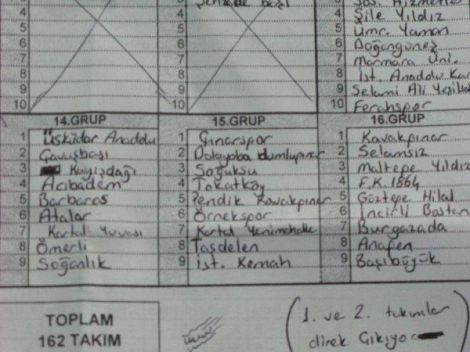 3
4
5
6
7
8
9
10
3
4 Şile Yıldız
5 Ümr. Yaman
6 Doğangüneş
7 Marmara Üni.
8 İst. Anadolu
9 Selami Ali
10 Ferahspor
14.GRUP
1 Üsküdar Anadolu
2 Çavuşbaşı
3 Kayışdağı
4 Acıbadem
5 Barbaros
6 Atalar
7 Kartal Yuvası
8 Ömerli
9 Soğanlık
15.GRUP
1 Çınarspor
2 Dolayoba Dumlupınar
3 Soğuksu
4 Tokatköy
5 Pendik Kavakpınar
6 Örnekspor
7 Kartal Yenimahalle
8 Taşdelen
9 İst. Kemah
16.GRUP
1 Kavakpınar
2 Selamsız
3 Maltepe Yıldız
4 F.K. 1864
5 Göztepe Hilal
6 İncirli Bostan
7 Burgazada
8 Anafen
9 Başıbüyük
TOPLAM
162 TAKIM
1. ve 2. takımlar
direk çıkıyo